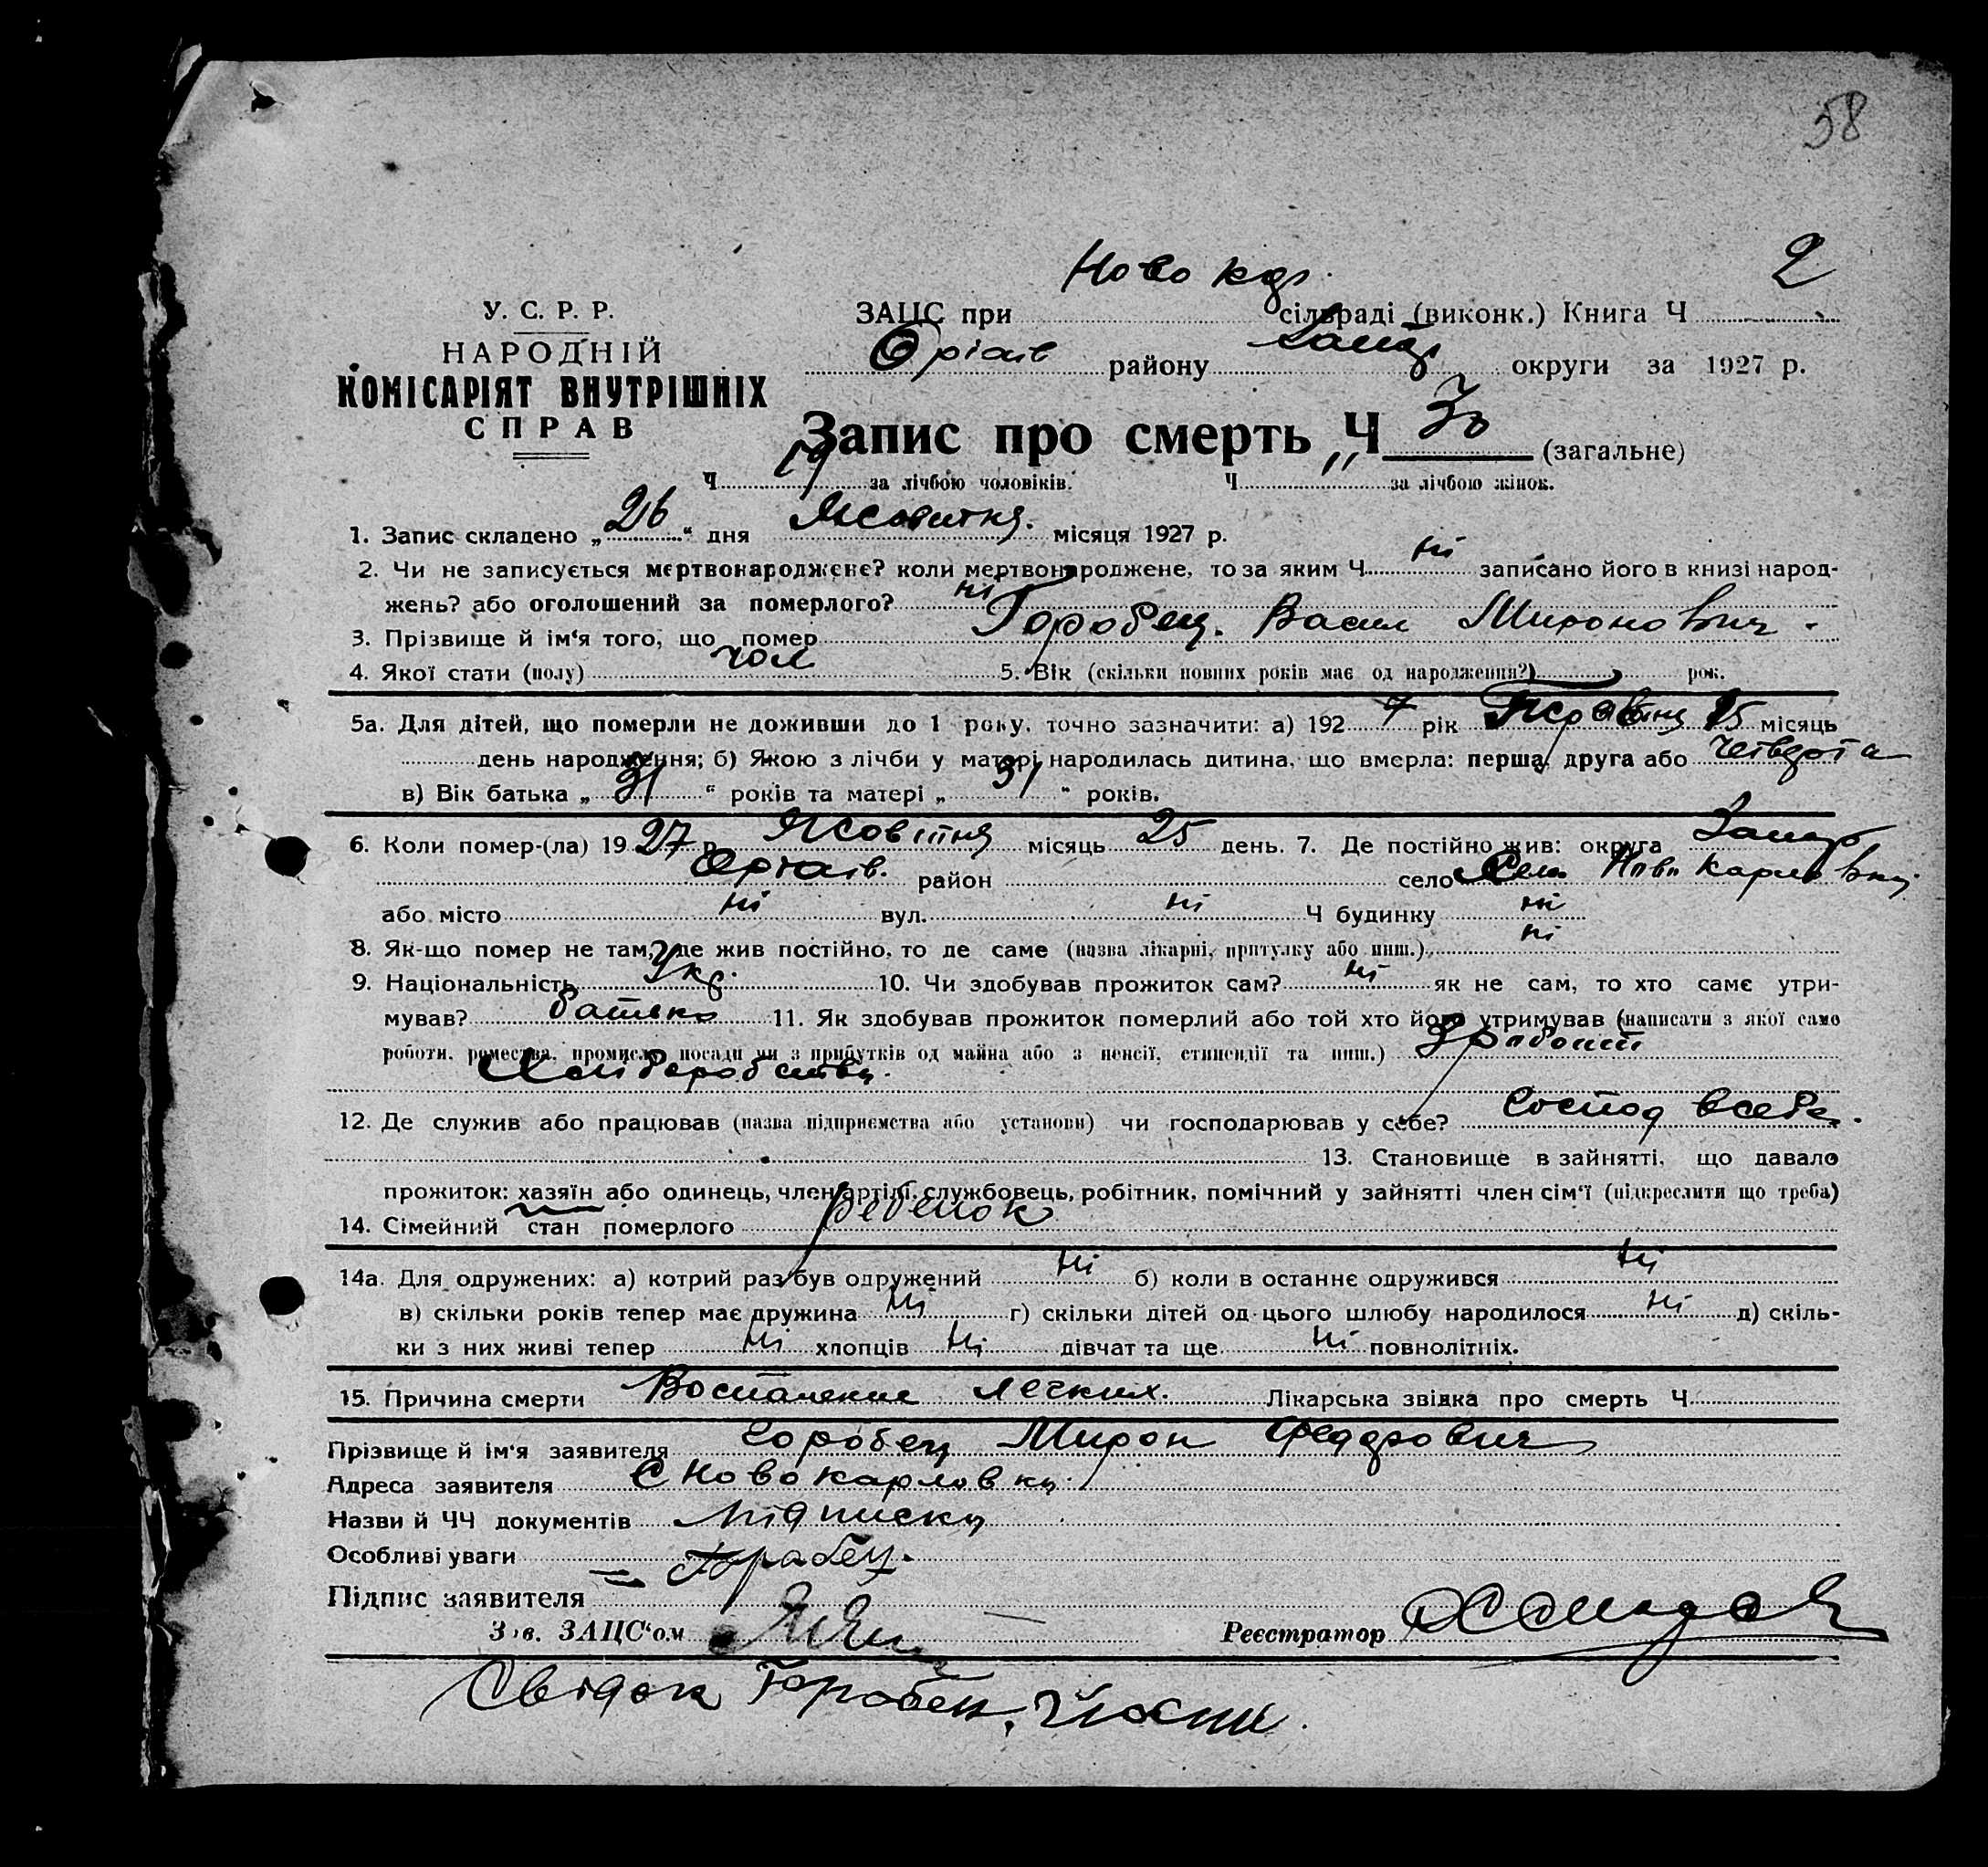 58
Ново кар. 2
У. С. Р. Р.
НАРОДНІЙ
КОМІСАРІЯТ ВНУТРІШНІХ
СПРАВ
ЗАЦС при сільраді (виконк.) Книга Ч
Оріхів району Запор округи за 1927 р.
Запис про смерть Ч 30 (загальне)
Ч 19 за лічбою чоловіків. Ч " за лічбою жінок.
1. Запис складено „26“ дня Жовитня. місяця 1927 р.
2. Чи не записується мертвонароджене? коли мертвонароджене, то за яким Ч ні записано його в книзі народ-
жень? або оголошений за померлого? ні
3. Прізвище й ім‘я того, що помер Горобец. Васил Миронович.
4. Якої стати (полу) чол 5. Вік (скільки повних років має од народження?) рок.
5а. Для дітей, що померли не доживши до 1 року, точно зазначити: а) 1927 рік Травня 15 місяць
день народження; б) Якою з лічби у матері народилась дитина, що вмерла: перша, друга або четверта
в) Вік батька „31“ років та матері „31“ років.
6. Коли помер-(ла) 1927 р. Жовітня місяць 25 день. 7. Де постійно жив: округа Запор
Оріхів. район село Села Ново Карловки
або місто ні вул. ні Ч будинку ні
8. Як-що помер не там, де жив постійно, то де саме (назва лікарні, притулку або инш.) ні
9. Національність Укр. 10. Чи здобував прожиток сам? ні як не сам, то хто саме утри-
мував? батько 11. Як здобував прожиток померлий або той хто його утримував (написати з якої само
роботи, ремества, промислу, посади чи з прибутків од майна або з пенсії, стипендії та инш.) З работи
Хліборобства.
12. Де служив або працював (назва підприємства або установи) чи господарював у себе? Господ в себе.
13. Становище в зайнятті, що давало
прожиток: хазяїн або одинець, член артілі, службовець, робітник, помічний у зайнятті член сім‘ї (підкреслити що треба)
14. Сімейний стан померлого ребенок
14а. Для одружених: а) котрий раз був одружений ні б) коли в останнє одружився ні
в) скільки років тепер має дружина ні г) скільки дітей од цього шлюбу народилося ні д) скіль-
ки з них живі тепер ні хлопців ні дівчат та ще ні повнолітніх.
15. Причина смерти Воспаление легких. Лікарська звідка про смерть Ч
Прізвище й ім‘я заявителя Горобец Мирон Федорович
Адреса заявителя С Ново карловки
Назви й ЧЧ документів підписки
Особливі уваги
Підпис заявителя Горабец.
Зав. ЗАЦС‘ом Реєстратор
Свідок Горобец,